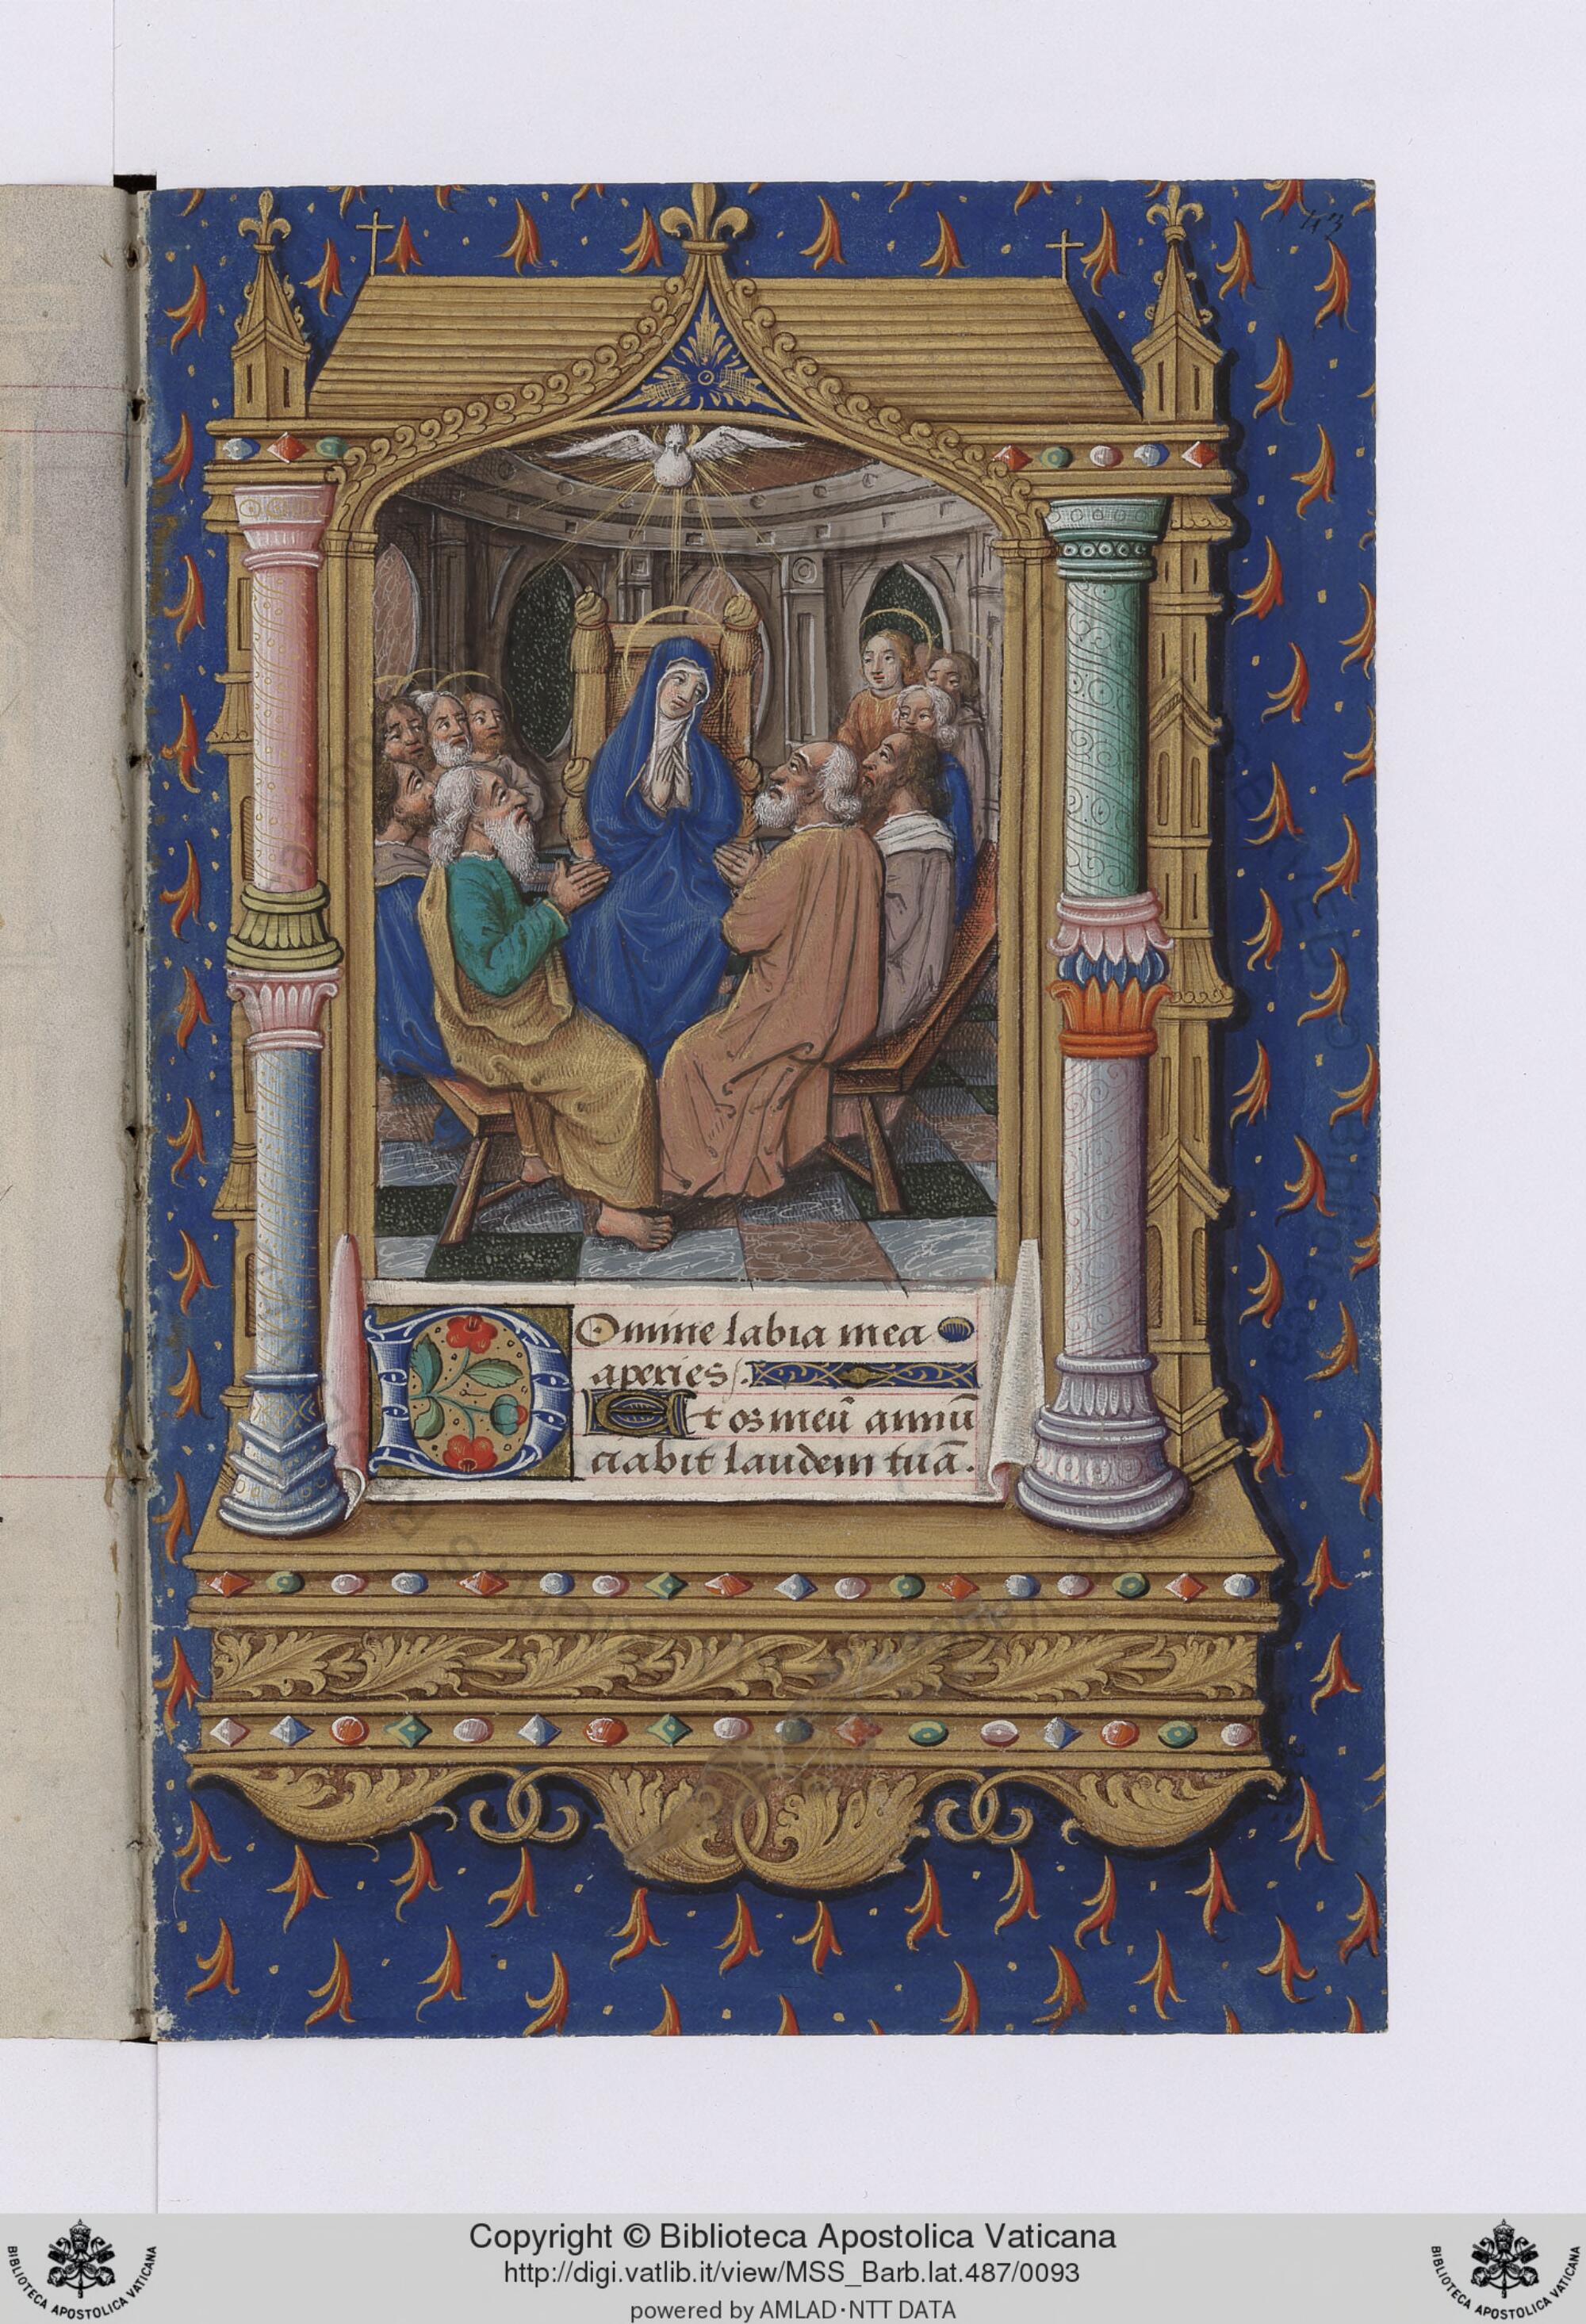 43
Domine labia mea
aperies.
Et os meū annū
ciabit laudem tuā.
Copyright © Biblioteca Apostolica Vaticana
http://digi.vatlib.it/view/MSS_Barb.lat.487/0093
powered by AMLAD·NTT DATA
BIBLIOTECA APOSTOLICA VATICANA
BIBLIOTECA APOSTOLICA VATICANA